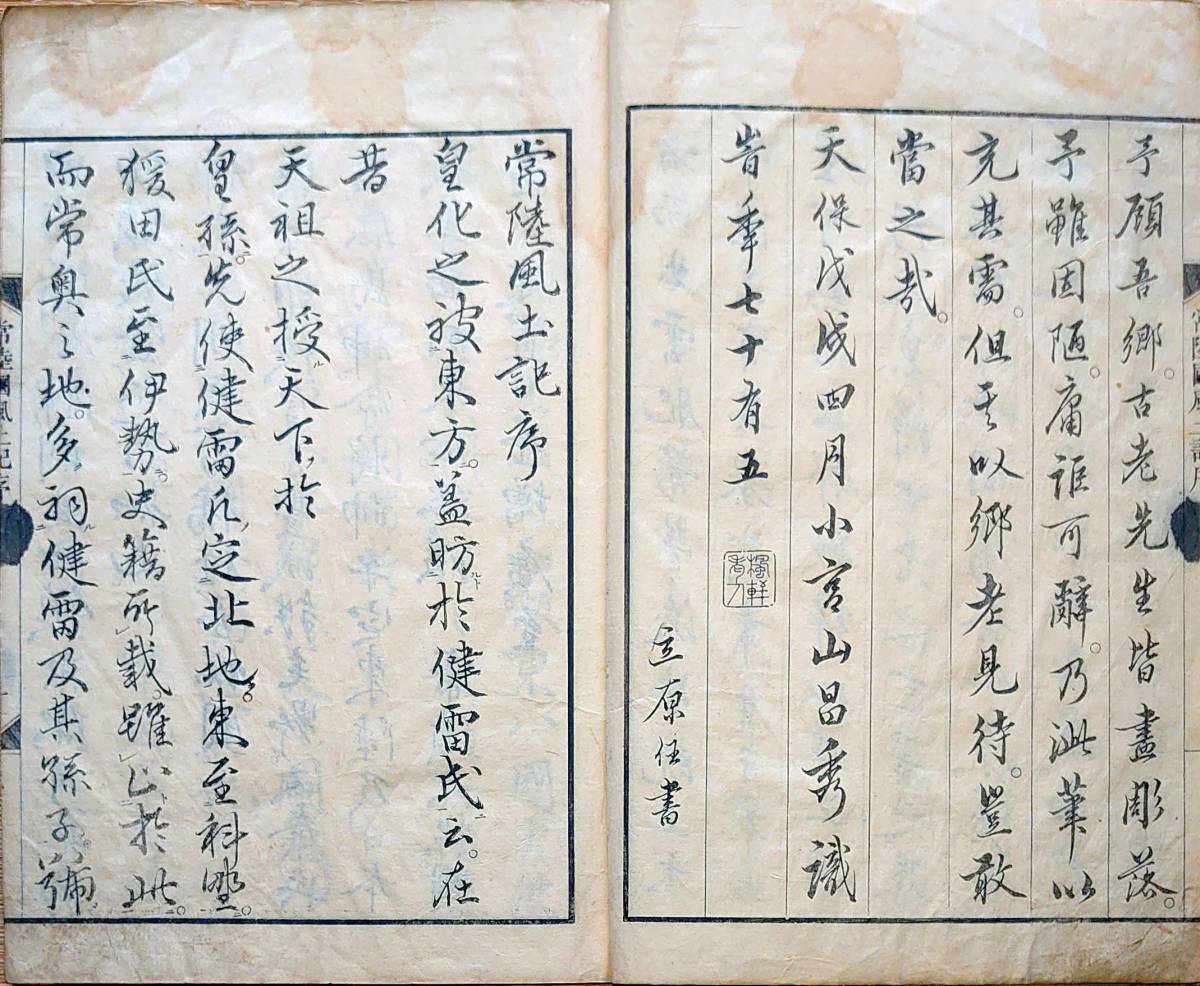 予顧吾郷。古老先生皆盡彫落。
予雖固陋。庸詎可辭。乃泚筆以
充其需。但其以郷老見待。豈敢
當之哉。
天保戊戌四月小宮山昌秀識
峕年七十有五
楓軒老人
立原任書
常陸風土記序
皇化之被東方。蓋昉於健雷氏云。在
昔
天祖之授天下於
皇孫。先使健雷氏定北地。東至科野。
猨田氏至伊勢。史籍所載。雖止於此。
而常奥之地。多祠健雷及其孫子。號
常陸國風土記序